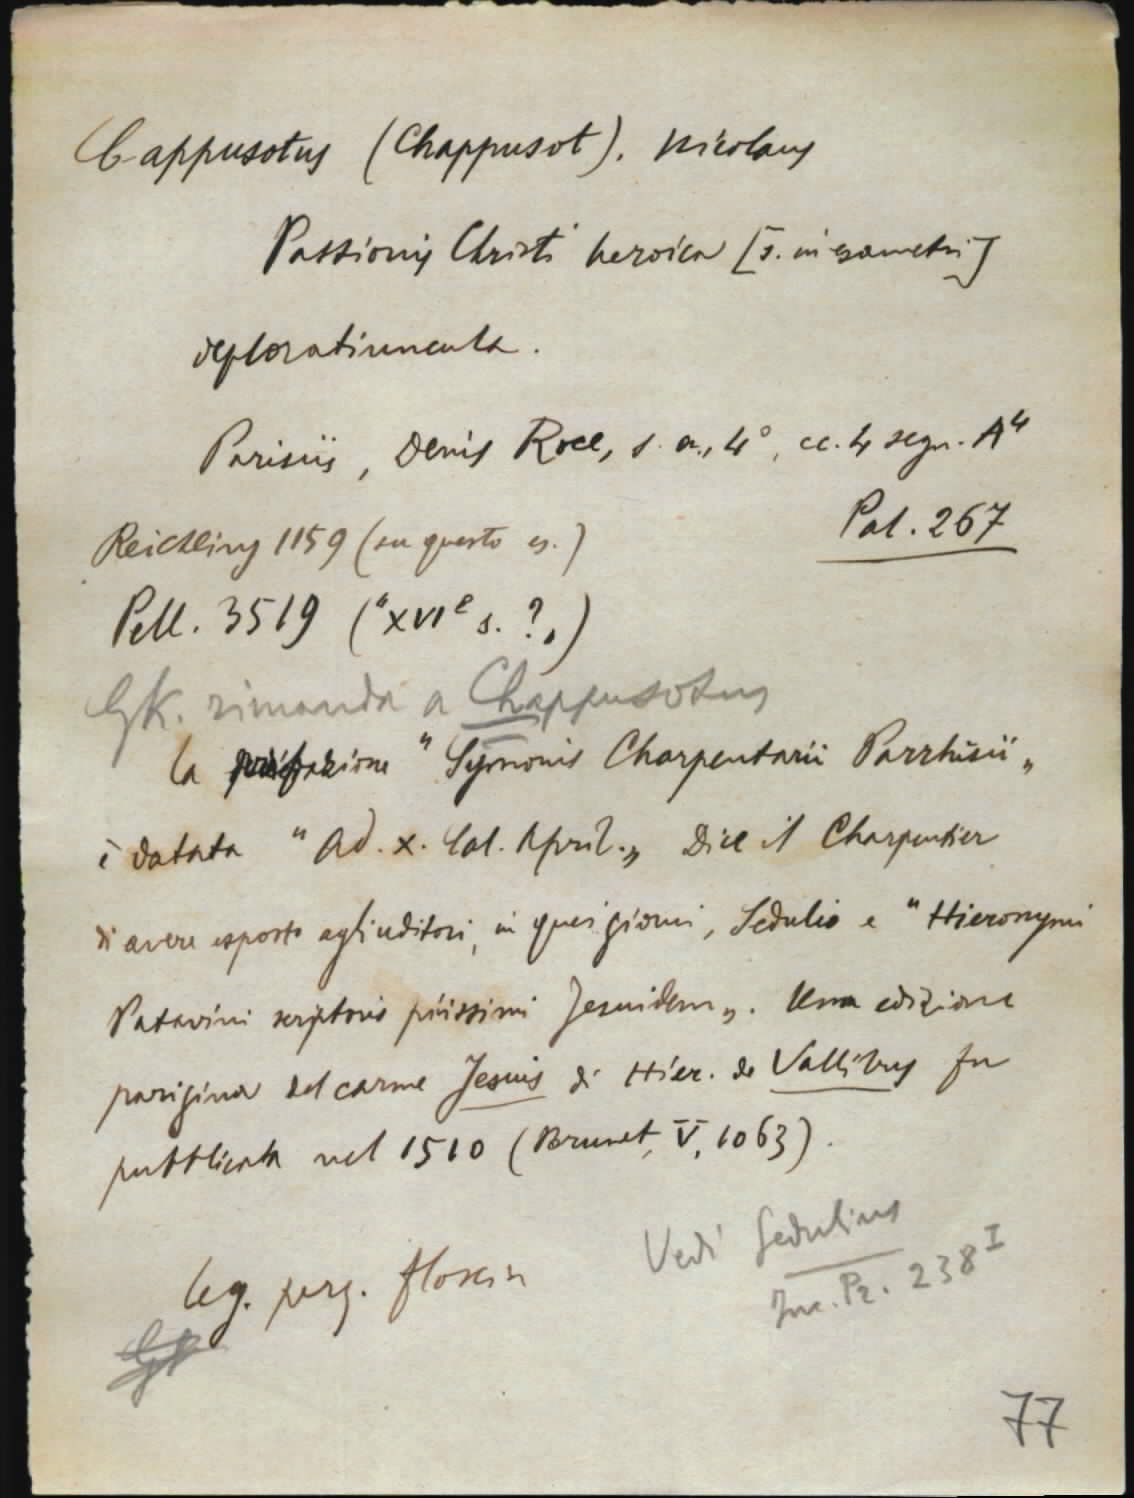 Cappusotus (Chappusot). Nicolaus
Passionis Christi heroica [s. in esametri]
deploratiuncula.
Parisiis, Denis Roce, s. a., 4°, cc. 4 segn. A⁴
Pal. 267
Reichling 1159 (su questo es.)
Pell. 3519 ("XVIᵉ s. ?„)
GK. rimanda a Chappusotus
la prefazione "Symonis Charpentarii Parrhisii„
è datata "Ad. x. Cal. April.„ Dice il Charpentier
di avere esposto agli uditori, in quei giorni, Sedulio e "Hieronymi
Patavini scriptoris piissimi Jesuidem„. Una edizione
parigina del carme Jesuis di Hier. de Vallibus fu
pubblicata nel 1510 (Brunet, V, 1063).
Vedi Sedulius
Inc. Pr. 238 I
leg. perg. floscia
GK
77